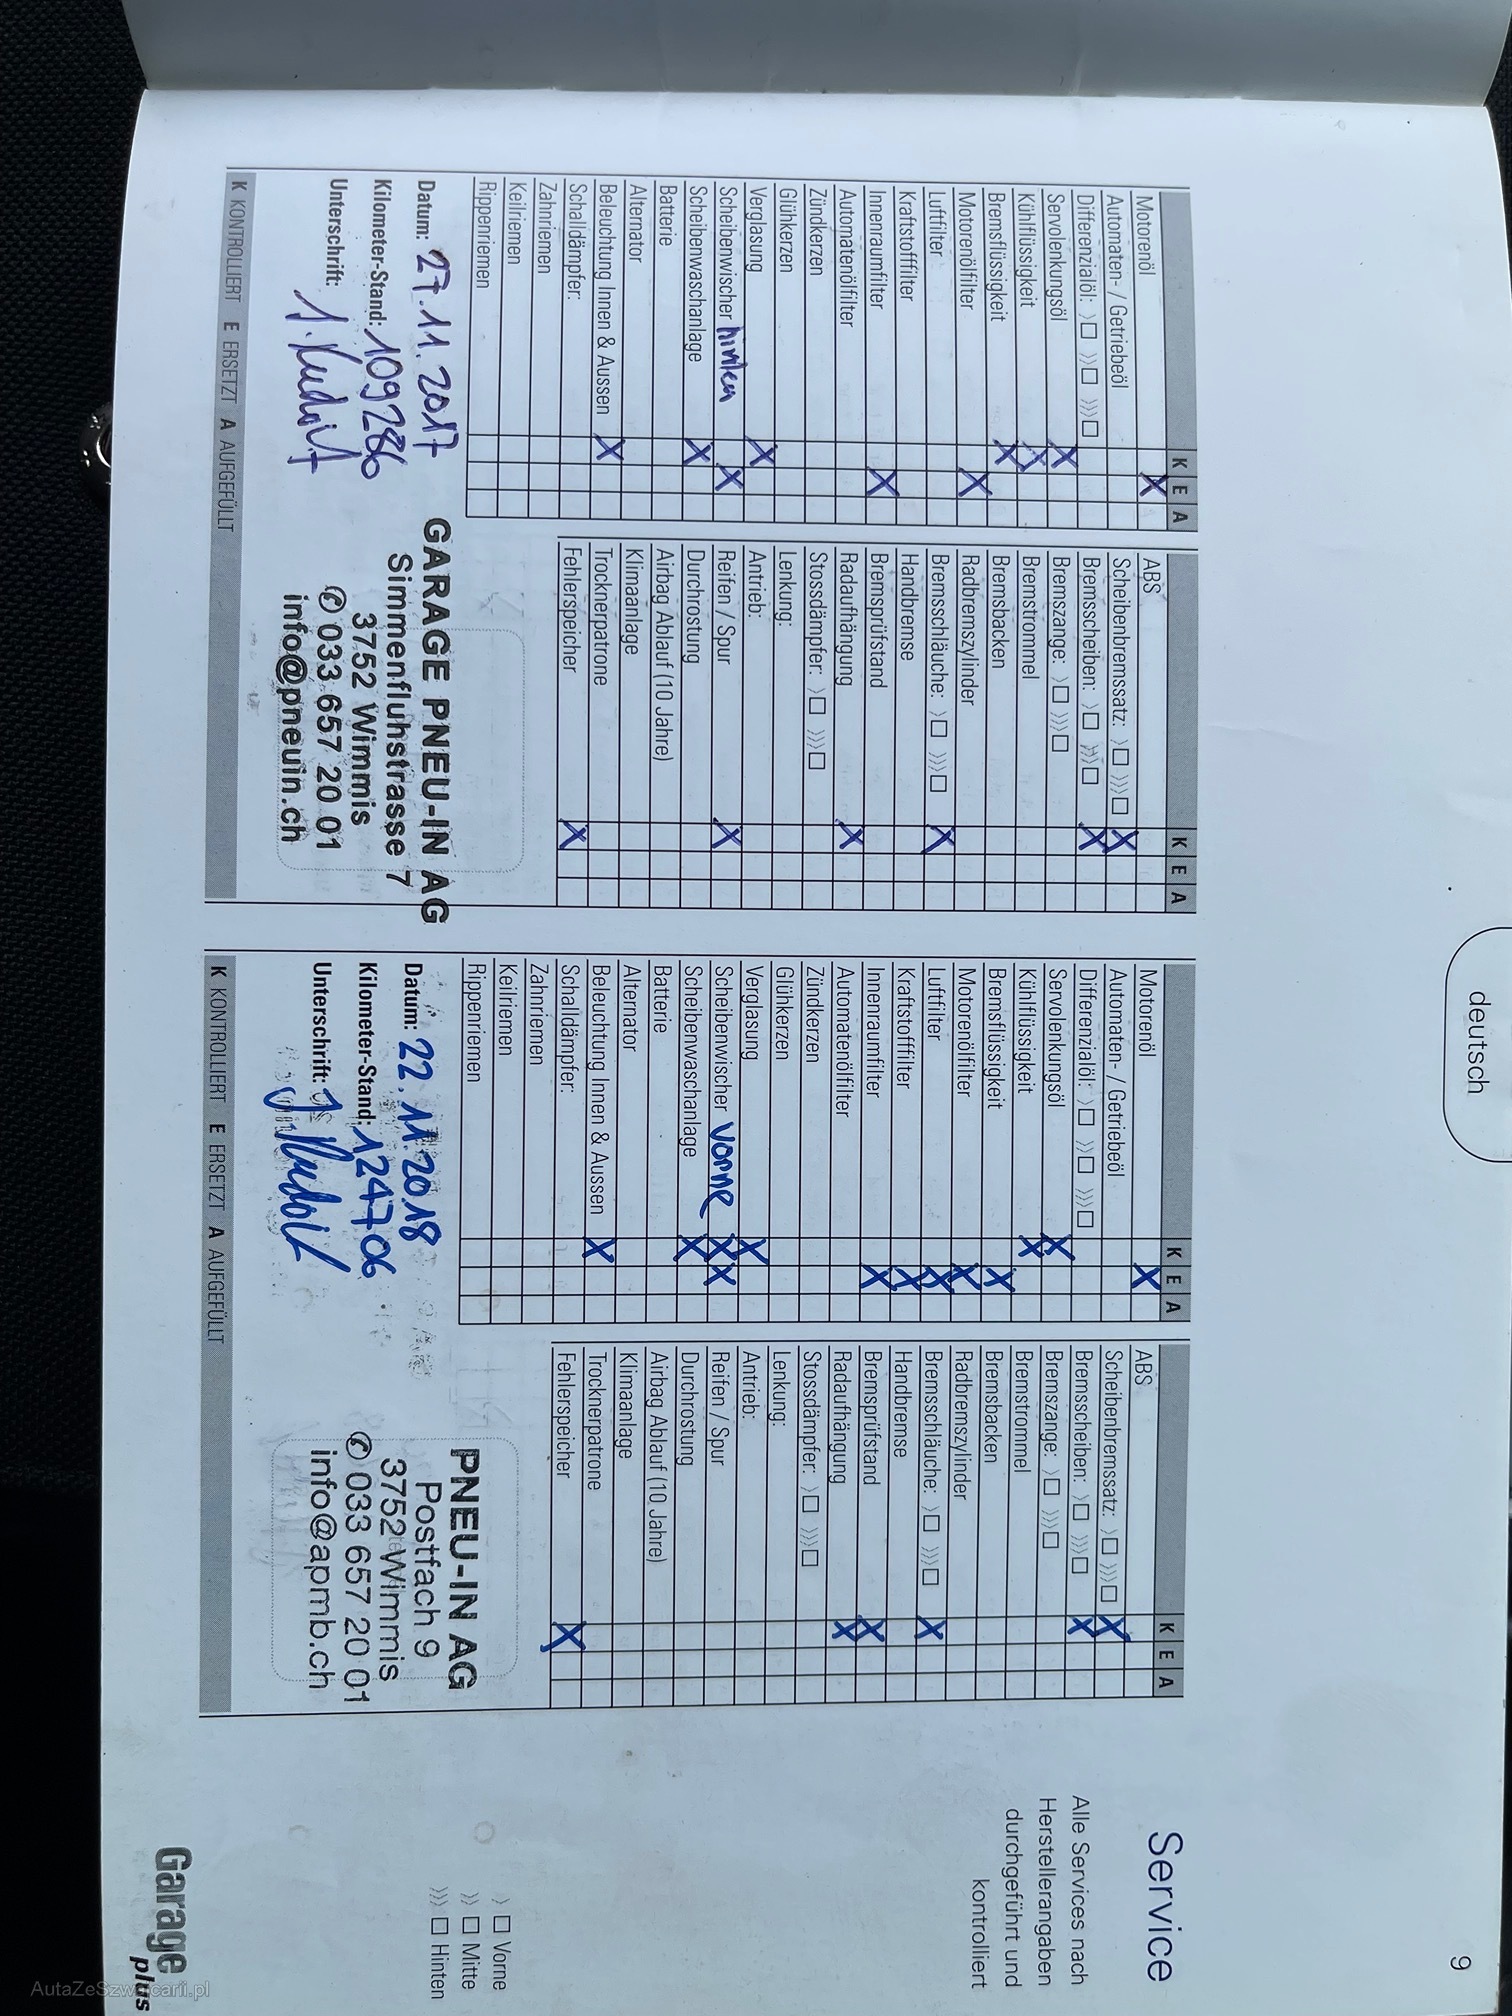 deutsch
9
Service
Alle Services nach
Herstellerangaben
durchgeführt und
kontrolliert
K E A
Motorenöl X
Automaten- / Getriebeöl
Differenzialöl: 〉☐ 〉〉☐ 〉〉〉☐
Servolenkungsöl X
Kühlflüssigkeit X
Bremsflüssigkeit X
Motorenölfilter X
Luftfilter
Kraftstofffilter
Innenraumfilter X
Automatenölfilter
Zündkerzen
Glühkerzen
Verglasung X
Scheibenwischer hinten X
Scheibenwaschanlage X
Batterie
Alternator
Beleuchtung Innen & Aussen X
Schalldämpfer:
Zahnriemen
Keilriemen
Rippenriemen
K E A
ABS
Scheibenbremssatz: 〉☐ 〉〉〉☐ X
Bremsscheiben: 〉☐ 〉〉〉☐ X
Bremszange: 〉☐ 〉〉〉☐
Bremstrommel
Bremsbacken
Radbremszylinder
Bremsschläuche: 〉☐ 〉〉〉☐ X
Handbremse
Bremsprüfstand
Radaufhängung X
Stossdämpfer: 〉☐ 〉〉〉☐
Lenkung:
Antrieb:
Reifen / Spur X
Durchrostung
Airbag Ablauf (10 Jahre)
Klimaanlage
Trocknerpatrone
Fehlerspeicher X
Datum: 27.11.2017
Kilometer-Stand: 109286
Unterschrift:
GARAGE PNEU-IN AG
Simmenfluhstrasse 7
3752 Wimmis
✆ 033 657 20 01
info@pneuin.ch
K KONTROLLIERT E ERSETZT A AUFGEFÜLLT
K E A
Motorenöl X
Automaten- / Getriebeöl
Differenzialöl: 〉☐ 〉〉☐ 〉〉〉☐
Servolenkungsöl X
Kühlflüssigkeit X
Bremsflüssigkeit X
Motorenölfilter X
Luftfilter X
Kraftstofffilter X
Innenraumfilter X
Automatenölfilter
Zündkerzen
Glühkerzen
Verglasung X
Scheibenwischer vorne X X
Scheibenwaschanlage X
Batterie
Alternator
Beleuchtung Innen & Aussen X
Schalldämpfer:
Zahnriemen
Keilriemen
Rippenriemen
K E A
ABS
Scheibenbremssatz: 〉☐ 〉〉〉☐ X
Bremsscheiben: 〉☐ 〉〉〉☐ X
Bremszange: 〉☐ 〉〉〉☐
Bremstrommel
Bremsbacken
Radbremszylinder
Bremsschläuche: 〉☐ 〉〉〉☐ X
Handbremse
Bremsprüfstand X
Radaufhängung X
Stossdämpfer: 〉☐ 〉〉〉☐
Lenkung:
Antrieb:
Reifen / Spur
Durchrostung
Airbag Ablauf (10 Jahre)
Klimaanlage
Trocknerpatrone
Fehlerspeicher X
Datum: 22.11.2018
Kilometer-Stand: 124706
Unterschrift:
PNEU-IN AG
Postfach 9
3752 Wimmis
✆ 033 657 20 01
info@apmb.ch
K KONTROLLIERT E ERSETZT A AUFGEFÜLLT
〉 ☐ Vorne
〉〉 ☐ Mitte
〉〉〉 ☐ Hinten
Garage
plus
AutaZeSzwajcarii.pl